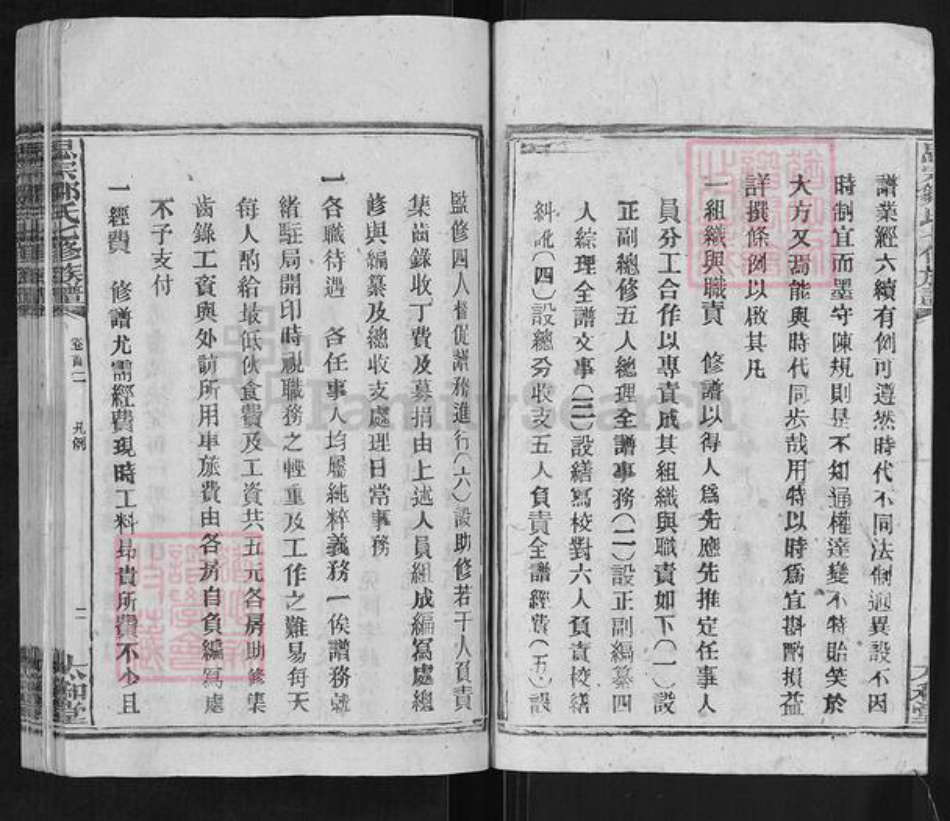 譜業經六續有例可遵然時代不同法制迥異設不因
時制宜而墨守陳規則是不知通權達變不特貽笑於
大方又焉能與時代同步哉用特以時爲宜斟酌損益
詳撰條例以啟其凡
一組織與職責 修譜以得人爲先應先推定任事人
員分工合作以專責成其組織與職責如下(一)設
正副總修五人總理全譜事務(二)設正副編纂四
人綜理全譜文事(三)設繕寫校對六人負責校繕
糾訛(四)設總分收支五人負責全譜經費(五)設
監修四人督促譜務進行(六)設助修若干人負責
集齒錄收丁費及募捐由上述人員組成編寫處總
修與編纂及總收支處理日常事務
一各職待遇 各任事人均屬純粹義務一俟譜務就
緒駐局開印時視職務之輕重及工作之難易每天
每人酌給最低伙食費及工資共五元各房助修集
齒錄工資與外訪所用車旅費由各房自負編寫處
不予支付
一經費 修譜尤需經費現時工料昂貴所費不少且
思宗鄒氏七修族譜
卷首二 凡例 二
太和堂
FamilySearch